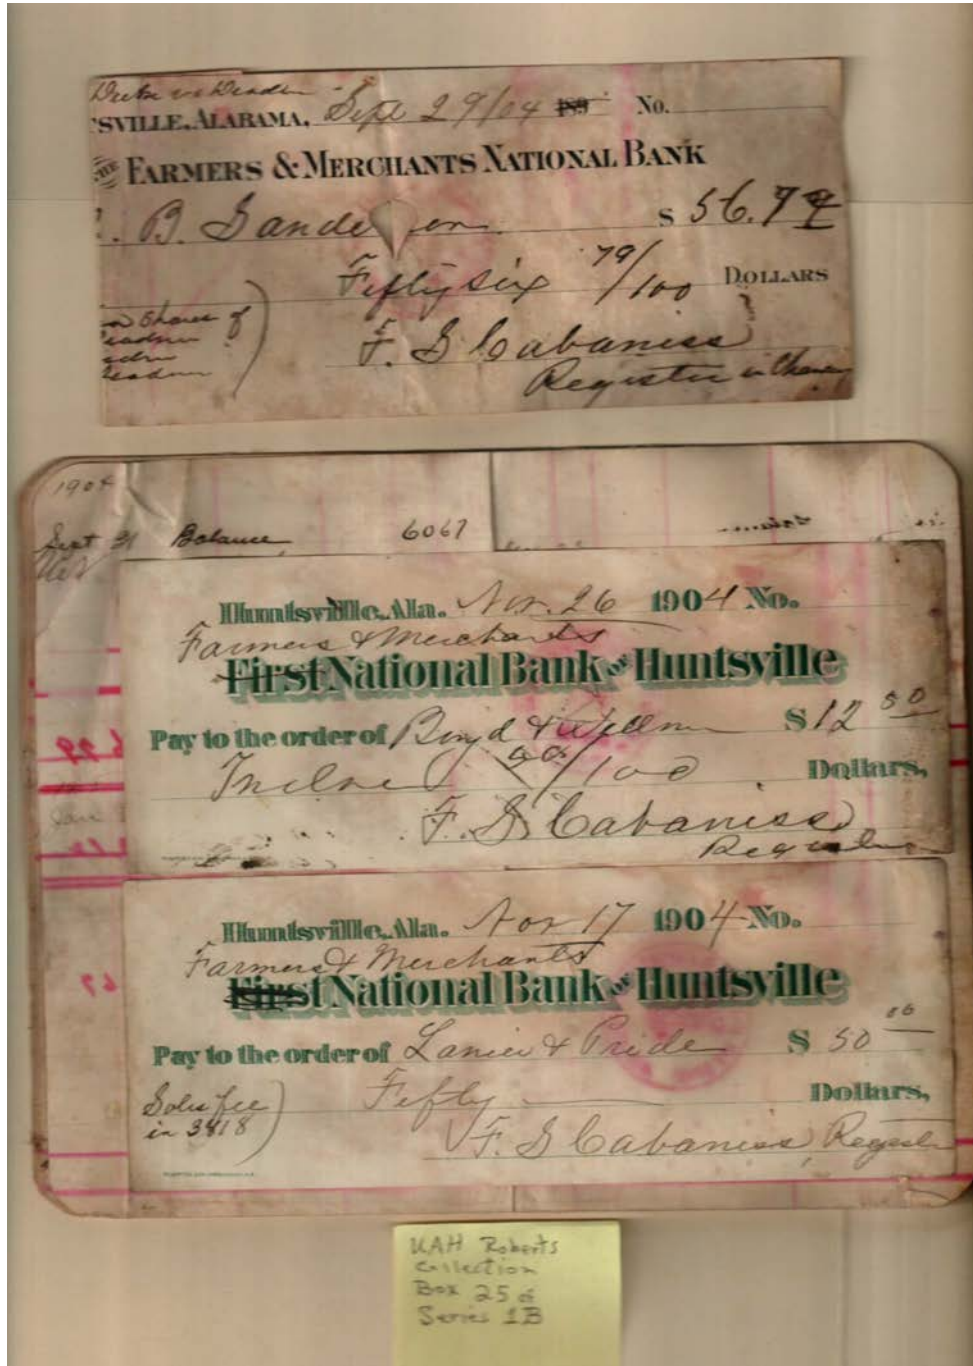 SVILLE, ALABAMA, Sept 29/04 189 No.
THE FARMERS & MERCHANTS NATIONAL BANK
. B. Sande on $ 56.79
Fifty six 79/100 DOLLARS
Shares of
F. S Cabaniss
Register in
1904
Sept Balance 6067
Huntsville, Ala. Nov. 26 1904 No.
Farmers & Merchants
First National Bank of Huntsville
Pay to the order of Boyd & $ 12 50
Twelve /100 Dollars,
F. S Cabaniss
Register
Huntsville, Ala. Nov 17 1904 No.
Farmers & Merchants
First National Bank of Huntsville
Pay to the order of Lanier & Pride $ 50
Fifty Dollars,
Sols fee
in 3818
F. S Cabaniss, Register
UAH Roberts
Collection
Box 25 of
Series 1B